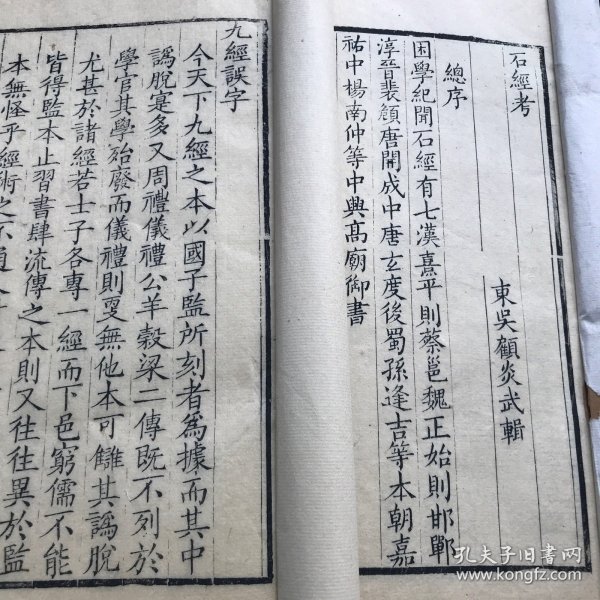 石經考
東吳顧炎武輯
總序
困學紀聞石經有七漢熹平則蔡邕魏正始則邯鄲
淳晉裴頠唐開成中唐玄度後蜀孫逢吉等本朝嘉
祐中楊南仲等中興高廟御書
九經誤字
今天下九經之本以國子監所刻者為據而其中
譌脫寔多又周禮儀禮公羊穀梁二傳既不列於
學官其學殆廢而儀禮則更無他本可讎其譌脫
尤甚於諸經若士子各專一經而下邑窮儒不能
皆得監本止習書肆流傳之本則又往往異於監
本無怪乎經術之不通
孔夫子旧书网
www.kongfz.com